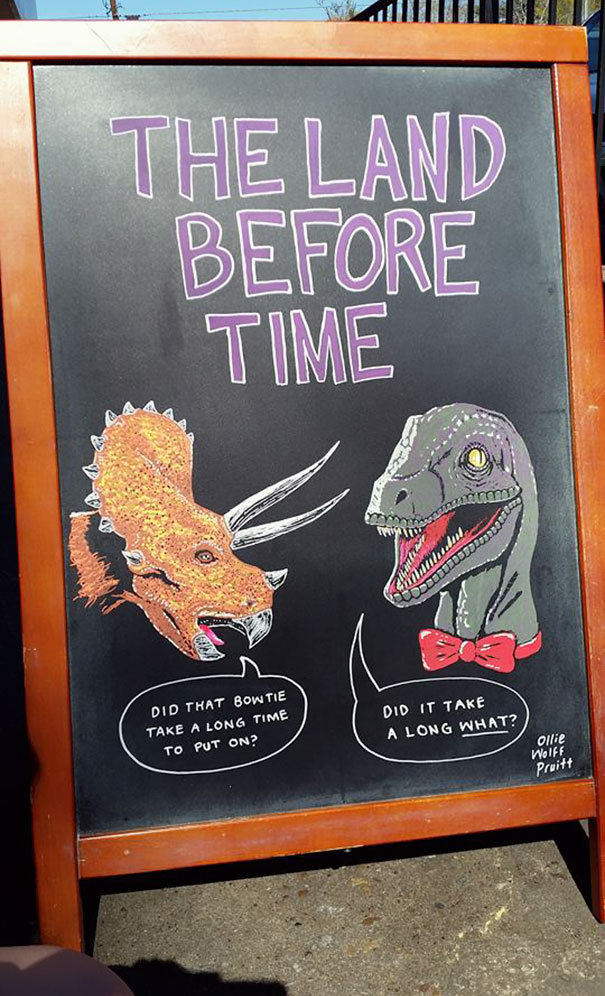 THE LAND
BEFORE
TIME
DID THAT BOWTIE
TAKE A LONG TIME
TO PUT ON?
DID IT TAKE
A LONG WHAT?
Ollie
Wolff
Pruitt